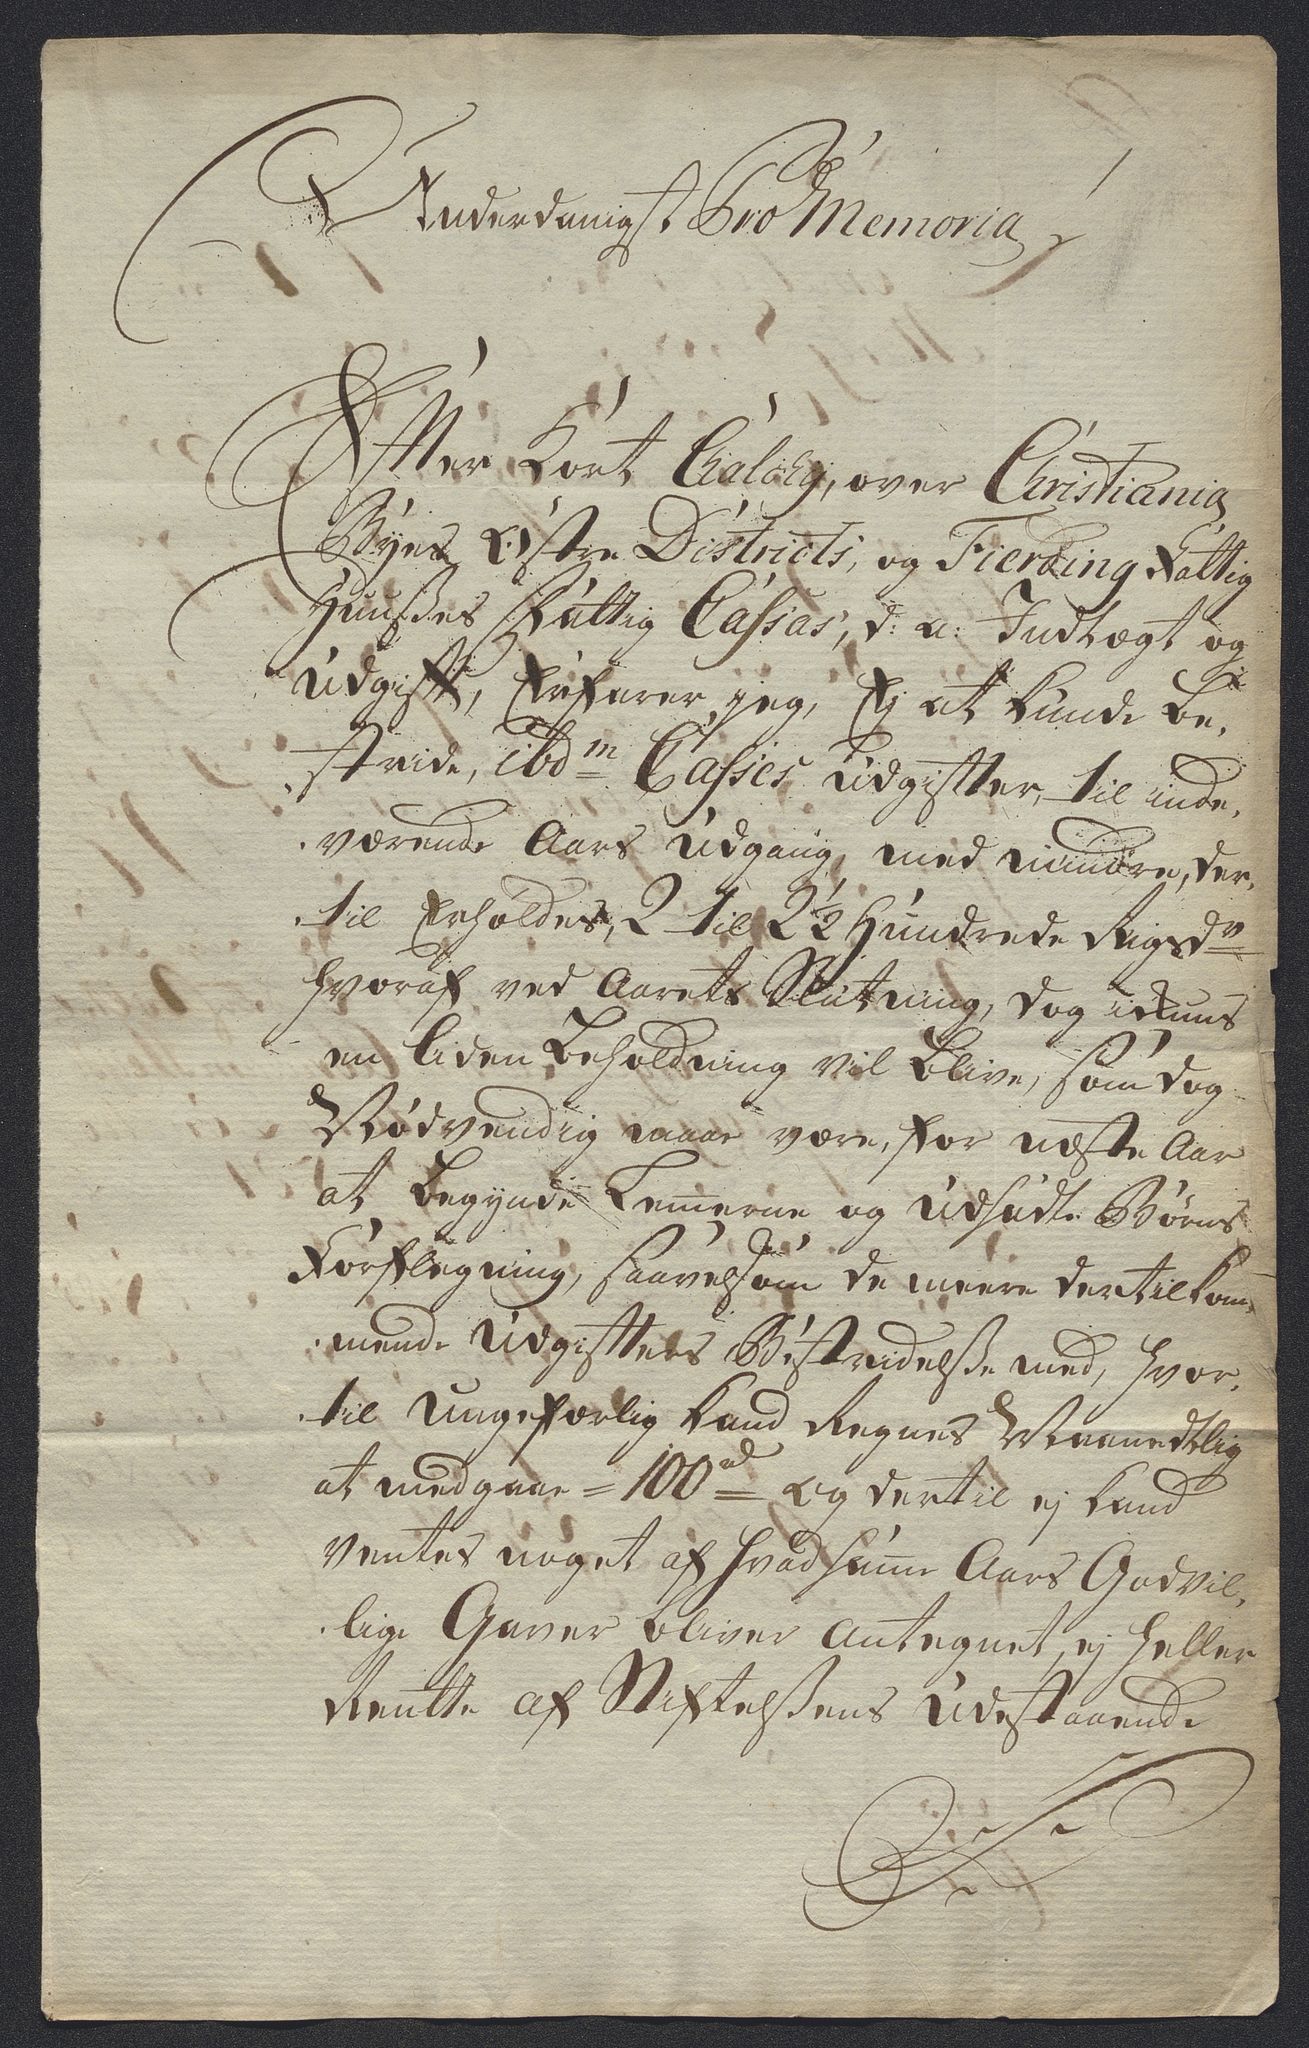 Underdanigst Pro Memoria
Efter Kort Calcky, over Christiania
Byes Östre Districts, og Fierding Fattig
Huusses Fattig Cassas, d: a: Indtægt og
Udgift, Erfarer jeg, Ej at kunde be,
stride, ibdm Casses Udgifter, til inde,
værende Aars Udgang, med mindre, der,
til Erholdes, 2 til 2½ Hundrede Rigsdr
hvoraf ved Aarets Slutning, dog ickuns
en liden Beholdning vil blive, som dog
Nødvendig maae være, for næste Aar
at begynde Lemerne og Udsadte Børns
Forpflegning, saavelsom de meere dertil kom,
mende Udgifters Bestridelsse med, hvor,
til Ungefærlig kand Regnes Maanedtlig
at medgaae = 100 rd = og dertil ej kand
ventes noget af hvad samme Aars Godvil,
lige Gaver bliver Antegnet, ej heller
Rentte af Stiftelssens Udestaaende